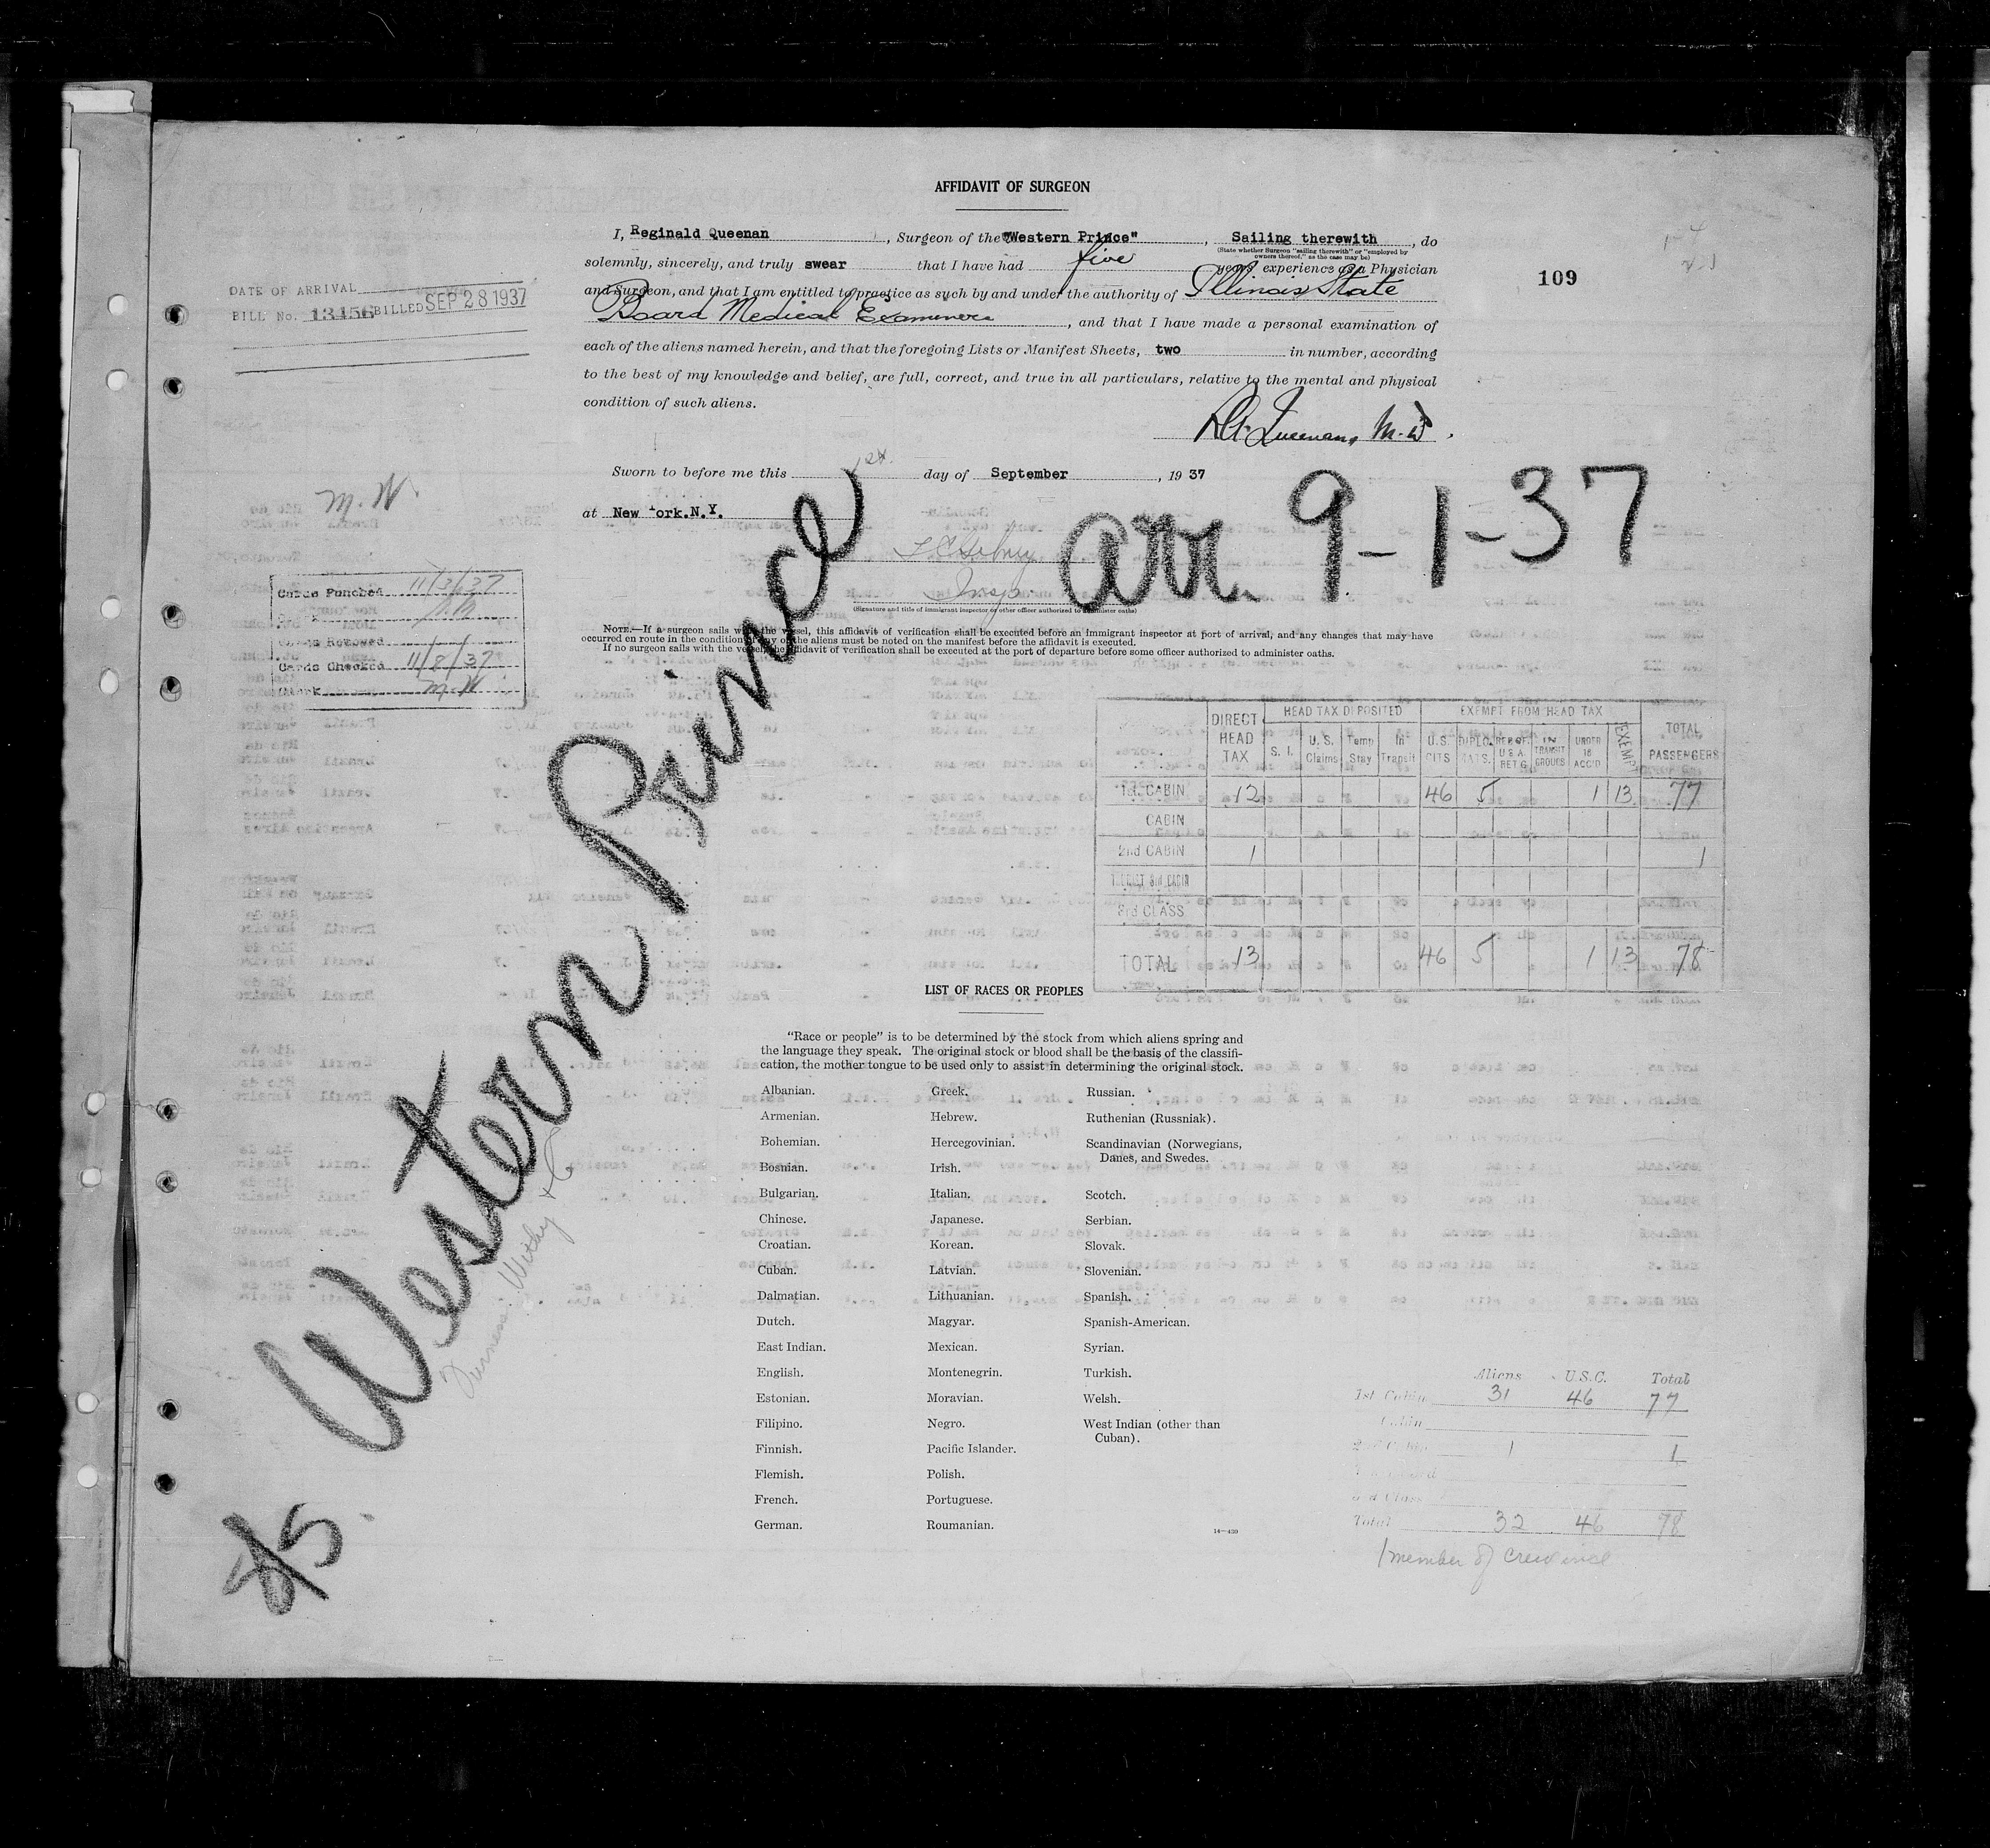 AFFIDAVIT OF SURGEON
I, Reginald Queenan, Surgeon of the "Western Prince", Sailing therewith, do
(State whether Surgeon "sailing therewith" or "employed by owners thereof," as the case may be)
solemnly, sincerely, and truly swear that I have had five years experience as a Physician
and Surgeon, and that I am entitled to practice as such by and under the authority of Illinois State
Board Medical Examiners, and that I have made a personal examination of
each of the aliens named herein, and that the foregoing Lists or Manifest Sheets, two in number, according
to the best of my knowledge and belief, are full, correct, and true in all particulars, relative to the mental and physical
condition of such aliens.
109
DATE OF ARRIVAL
BILL No. 13456 BILLED SEP 28 1937
Queenan, M.D.
Sworn to before me this 1st day of September, 1937
at New York.N.Y.
M.W.
Insp.
(Signature and title of immigrant inspector or other officer authorized to administer oaths)
arr. 9-1-37
Western Prince
Cards Punched 11/3/37
Cards Checked 11/8/37
Clerk M.W
NOTE.—If a surgeon sails with the vessel, this affidavit of verification shall be executed before an immigrant inspector at port of arrival, and any changes that may have
occurred en route in the condition of any of the aliens must be noted on the manifest before the affidavit is executed.
If no surgeon sails with the vessel, the affidavit of verification shall be executed at the port of departure before some officer authorized to administer oaths.
DIRECT HEAD TAX HEAD TAX DEPOSITED EXEMPT FROM HEAD TAX TOTAL PASSENGERS
S. I. U. S. Claims Temp Stay In Transit U.S. CITS DIPLOMATS. REP OF U S A RET'G IN TRANSIT GROUPS UNDER 16 ACC'D EXEMPT
1st CABIN 12 46 5 1 13 77
CABIN
2nd CABIN 1 1
TOURIST 3rd CABIN
3rd CLASS
TOTAL 13 46 5 1 13 78
LIST OF RACES OR PEOPLES
"Race or people" is to be determined by the stock from which aliens spring and
the language they speak. The original stock or blood shall be the basis of the classifi-
cation, the mother tongue to be used only to assist in determining the original stock.
Albanian.
Armenian.
Bohemian.
Bosnian.
Bulgarian.
Chinese.
Croatian.
Cuban.
Dalmatian.
Dutch.
East Indian.
English.
Estonian.
Filipino.
Finnish.
Flemish.
French.
German.
Greek.
Hebrew.
Hercegovinian.
Irish.
Italian.
Japanese.
Korean.
Latvian.
Lithuanian.
Magyar.
Mexican.
Montenegrin.
Moravian.
Negro.
Pacific Islander.
Polish.
Portuguese.
Roumanian.
Russian.
Ruthenian (Russniak).
Scandinavian (Norwegians,
Danes, and Swedes.
Scotch.
Serbian.
Slovak.
Slovenian.
Spanish.
Spanish-American.
Syrian.
Turkish.
Welsh.
West Indian (other than
Cuban).
14—420
Furness Withy & C
Aliens U.S.C. Total
1st Cabin 31 46 77
Cabin
2nd Cabin 1 1
3rd Class
Total 32 46 78
1 member of crew incl